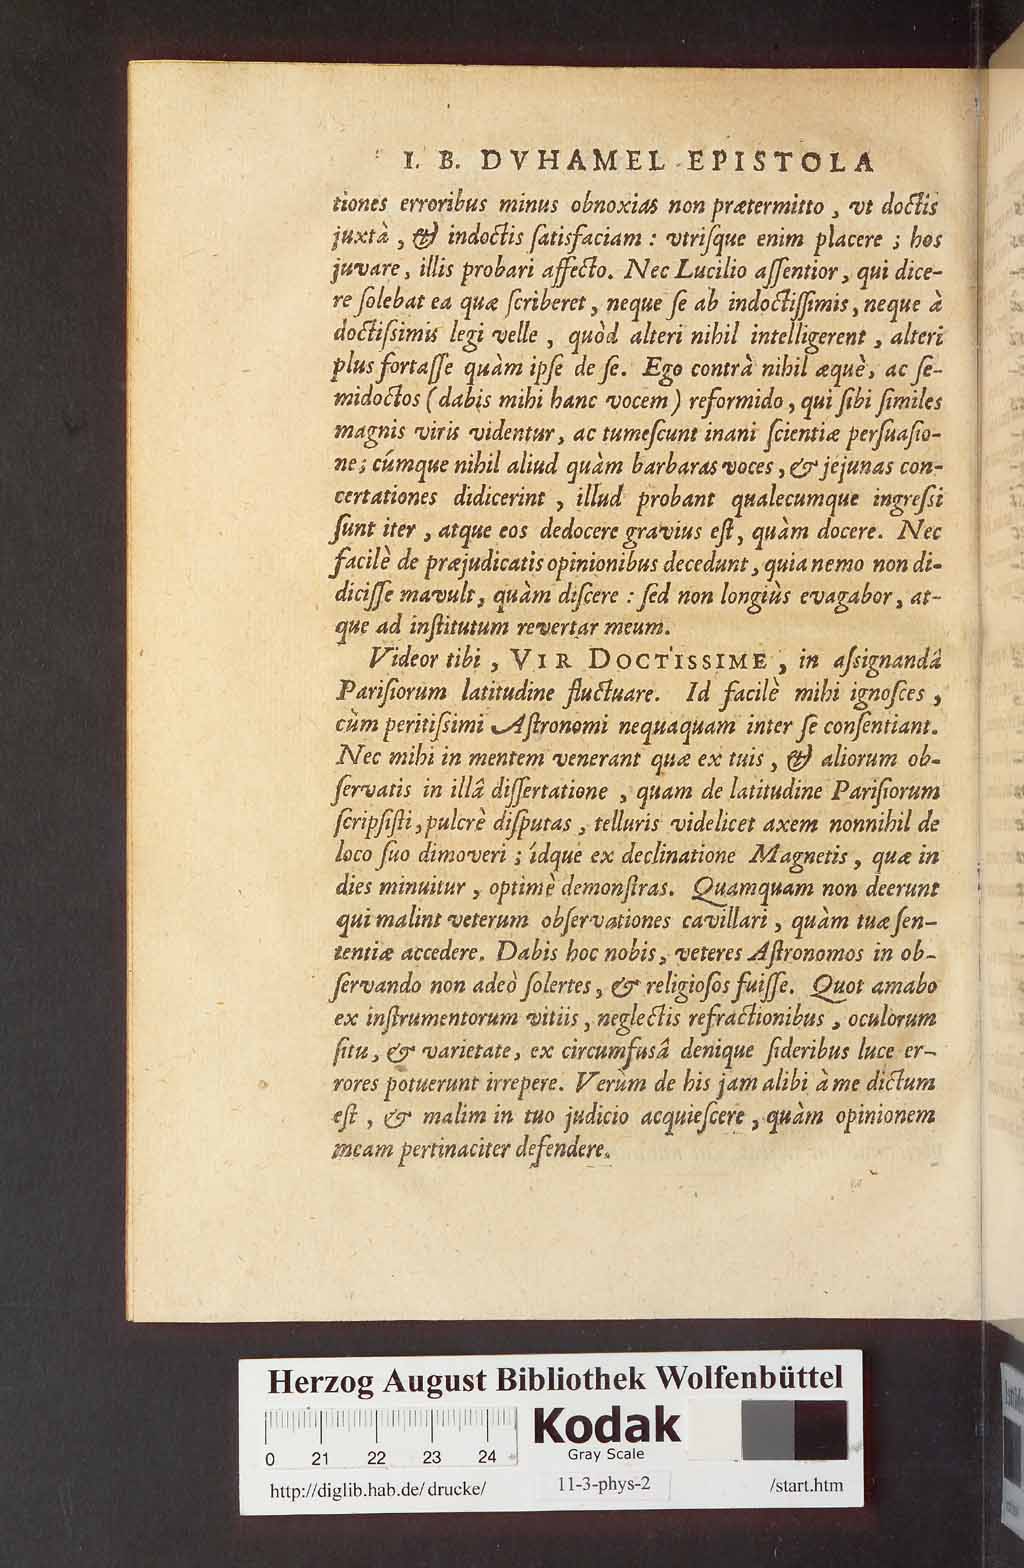 I. B. DVHAMEL EPISTOLA
tiones erroribus minus obnoxias non prætermitto, vt doctis
juxtà, & indoctis ſatisfaciam : vtriſque enim placere ; hos
juvare, illis probari affecto. Nec Lucilio aſſentior, qui dice-
re ſolebat ea quæ ſcriberet, neque ſe ab indoctiſſimis, neque à
doctiſsimis legi velle, quòd alteri nihil intelligerent, alteri
plus fortaſſe quàm ipſe de ſe. Ego contrà nihil æquè, ac ſe-
midoctos (dabis mihi hanc vocem) reformido, qui ſibi ſimiles
magnis viris videntur, ac tumeſcunt inani ſcientiæ perſuaſio-
ne; cúmque nihil aliud quàm barbaras voces, & jejunas con-
certationes didicerint, illud probant qualecumque ingreſsi
ſunt iter, atque eos dedocere gravius eſt, quàm docere. Nec
facilè de præjudicatis opinionibus decedunt, quia nemo non di-
diciſſe mavult, quàm diſcere : ſed non longiùs evagabor, at-
que ad inſtitutum revertar meum.
Videor tibi, VIR DOCTISSIME, in aſsignandâ
Pariſiorum latitudine fluctuare. Id facilè mihi ignoſces,
cùm peritiſsimi Aſtronomi nequaquam inter ſe conſentiant.
Nec mihi in mentem venerant quæ ex tuis, & aliorum ob-
ſervatis in illâ diſſertatione, quam de latitudine Pariſiorum
ſcripſiſti, pulcrè diſputas, telluris videlicet axem nonnihil de
loco ſuo dimoveri ; ídque ex declinatione Magnetis, quæ in
dies minuitur, optimè demonſtras. Quamquam non deerunt
qui malint veterum obſervationes cavillari, quàm tuæ ſen-
tentiæ accedere. Dabis hoc nobis, veteres Aſtronomos in ob-
ſervando non adeò ſolertes, & religioſos fuiſſe. Quot amabo
ex inſtrumentorum vitiis, neglectis refractionibus, oculorum
ſitu, & varietate, ex circumfusâ denique ſideribus luce er-
rores potuerunt irrepere. Verùm de his jam alibi à me dictum
eſt, & malim in tuo judicio acquieſcere, quàm opinionem
meam pertinaciter defendere.
Herzog August Bibliothek Wolfenbüttel
Kodak
Gray Scale
0 21 22 23 24
http://diglib.hab.de/drucke/ 11-3-phys-2 /start.htm